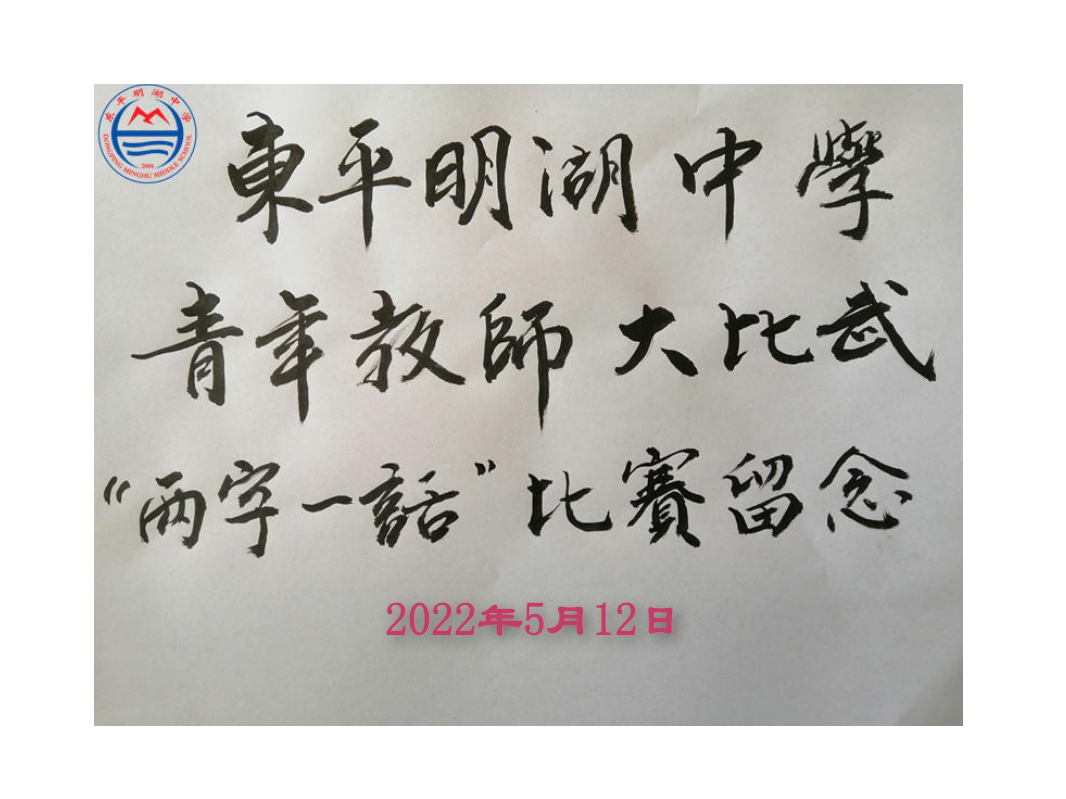 东平明湖中学
DONGPING MINGHU MIDDLE SCHOOL
2004
東平明湖中學
青年教師大比武
“两字一話”比賽留念
2022年5月12日